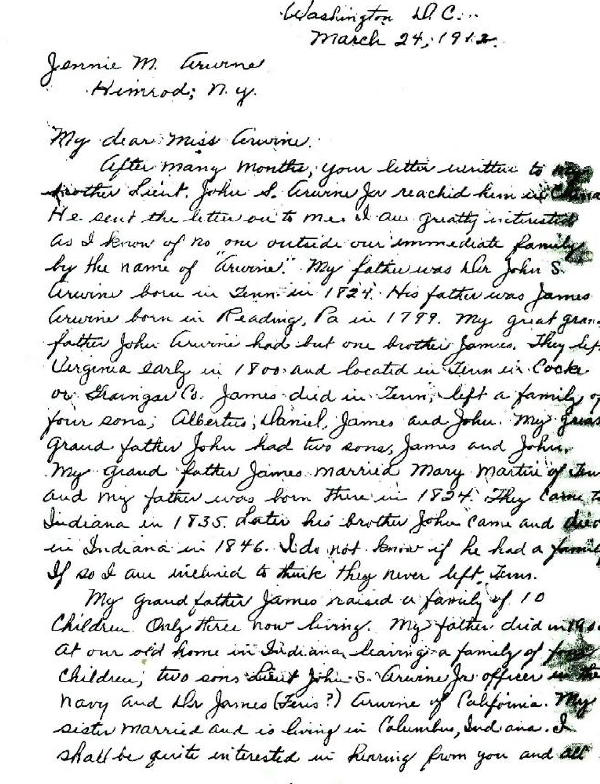 Washington D.C.
March 24, 1912.
Jennie M. Arwine
Himrod; N.y.
My dear Miss Arwine.
After many months, your letter written to my
brother Lieut. John S. Arwine Jr reached him in China
He sent the letter on to me. I am greatly interested
as I know of no one outside our immediate family
by the name of "Arwine." My father was Dr John S.
Arwine born in Tenn in 1824. His father was James
Arwine born in Reading, Pa in 1799. My great gran
father John Arwine had but one brother James. They lef
Virginia early in 1800 and located in Tenn in Cocke
or Graingar Co. James died in Tenn, left a family of
four sons; Albertus, Daniel, James and John. My great
Grand father John had two sons, James and John.
My grand father James married Mary Martin of Ten
and my father was born there in 1824. They came t
Indiana in 1835. Later his brother John came and died
in Indiana in 1846. I do not know if he had a family
If so I am inclined to think they never left Tenn.
My Grandfather James raised a family of 10
Children Only three now living. My father died in
At our old home in Indiana, leaving a family of four
children; two sons Lieut John S. Arwine Jr officer in the
navy and Dr James (Feris?) Arwine of California. My
sister married and is living in Columbus, Indiana. I
shall be quite interested in hearing from you and all